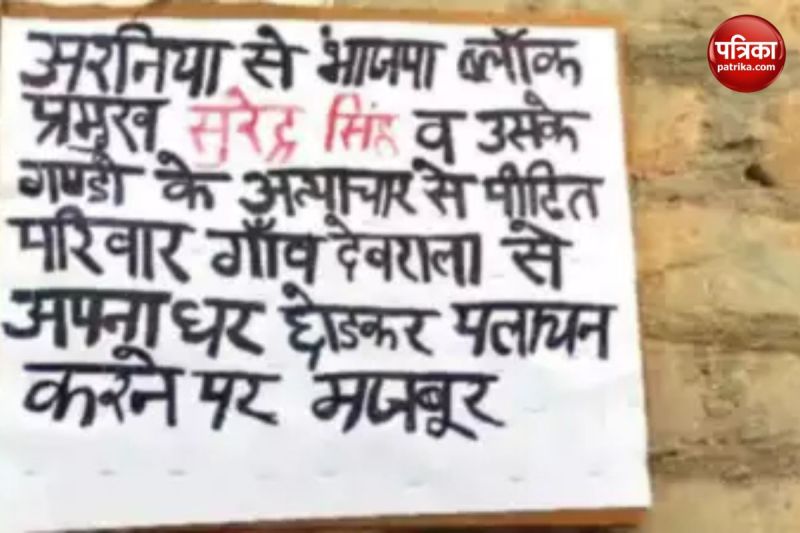 अरनिया से भाजपा ब्लॉक
प्रमुख सुरेंद्र सिंह व उसके
गुण्डो के अत्याचार से पीडित
परिवार गाँव देवराला से
अपना घर छोडकर पलायन
करने पर मजबूर
पत्रिका
patrika.com